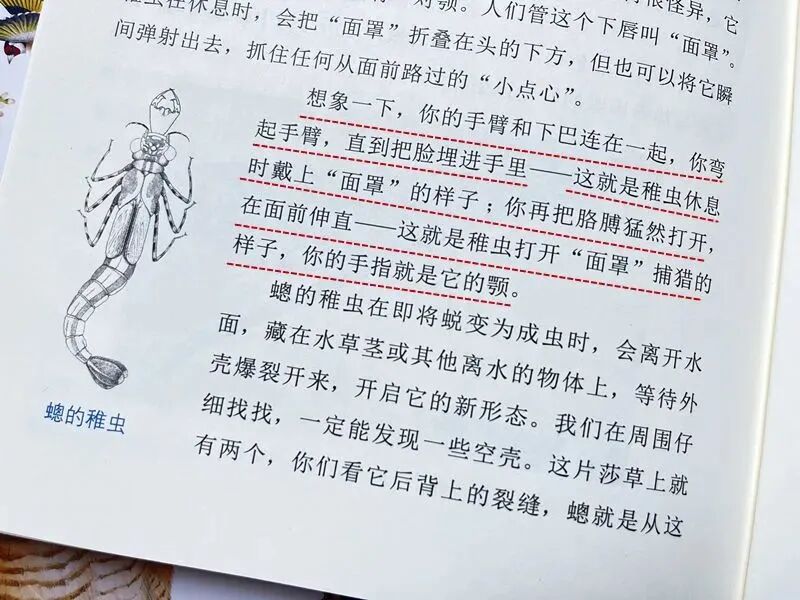 虫在休息时，会把“面罩”折叠在头的下方，但也可以将它瞬
对颚。人们管这个下唇叫“面罩”。
间弹射出去，抓住任何从面前路过的“小点心”。
想象一下，你的手臂和下巴连在一起，你弯
起手臂，直到把脸埋进手里——这就是稚虫休息
时戴上“面罩”的样子；你再把胳膊猛然打开，
在面前伸直——这就是稚虫打开“面罩”捕猎的
样子，你的手指就是它的颚。
蟌的稚虫在即将蜕变为成虫时，会离开水
面，藏在水草茎或其他离水的物体上，等待外
壳爆裂开来，开启它的新形态。我们在周围仔
细找找，一定能发现一些空壳。这片莎草上就
有两个，你们看它后背上的裂缝，蟌就是从这
蟌的稚虫